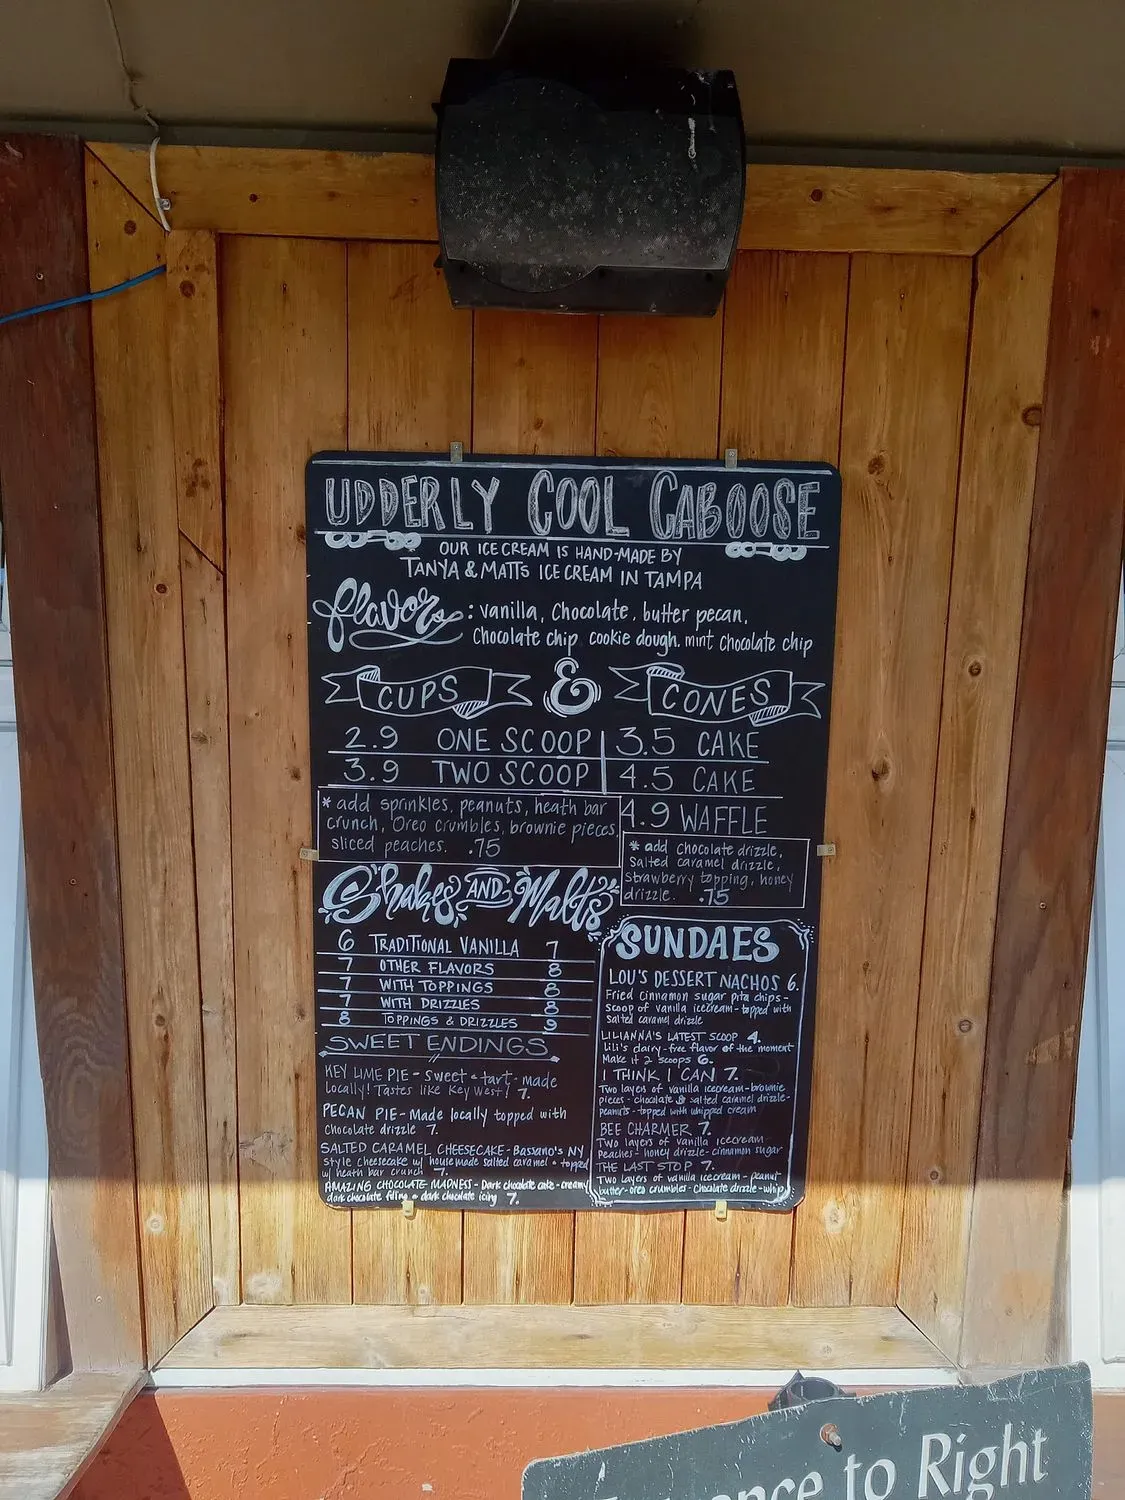 UDDERLY COOL CABOOSE
OUR ICE CREAM IS HAND-MADE BY
TANYA & MATTS ICE CREAM IN TAMPA
flavors : vanilla, Chocolate, butter pecan,
Chocolate chip cookie dough. mint chocolate chip
CUPS & CONES
2.9 ONE SCOOP 3.5 CAKE
3.9 TWO SCOOP 4.5 CAKE
4.9 WAFFLE
* add sprinkles, peanuts, heath bar
crunch, Oreo crumbles, brownie pieces,
sliced peaches. .75
* add chocolate drizzle,
salted caramel drizzle,
strawberry topping, honey
drizzle. .75
Shakes AND Malts
6 TRADITIONAL VANILLA 7
7 OTHER FLAVORS 8
7 WITH TOPPINGS 8
7 WITH DRIZZLES 8
8 TOPPINGS & DRIZZLES 9
SWEET ENDINGS
KEY LIME PIE - sweet + tart - made
locally! Tastes like Key West! 7.
PECAN PIE - Made locally topped with
chocolate drizzle 7.
SALTED CARAMEL CHEESECAKE - Bassano's NY
style cheesecake w/ housemade salted caramel + topped
w/ heath bar crunch 7.
AMAZING CHOCOLATE MADNESS - Dark chocolate cake - creamy
dark chocolate filling + dark chocolate icing 7.
SUNDAES
LOU'S DESSERT NACHOS 6.
Fried cinnamon sugar pita chips -
scoop of vanilla icecream - topped with
salted caramel drizzle
LILIANNA'S LATEST SCOOP 4.
Lili's dairy-free flavor of the moment
Make it 2 scoops 6.
I THINK I CAN 7.
Two layers of vanilla icecream - brownie
pieces - chocolate & salted caramel drizzle -
peanuts - topped with whipped cream
BEE CHARMER 7.
Two layers of vanilla icecream -
peaches - honey drizzle - cinnamon sugar
THE LAST STOP 7.
Two layers of vanilla icecream - peanut
butter - oreo crumbles - Chocolate drizzle - whip
to Right